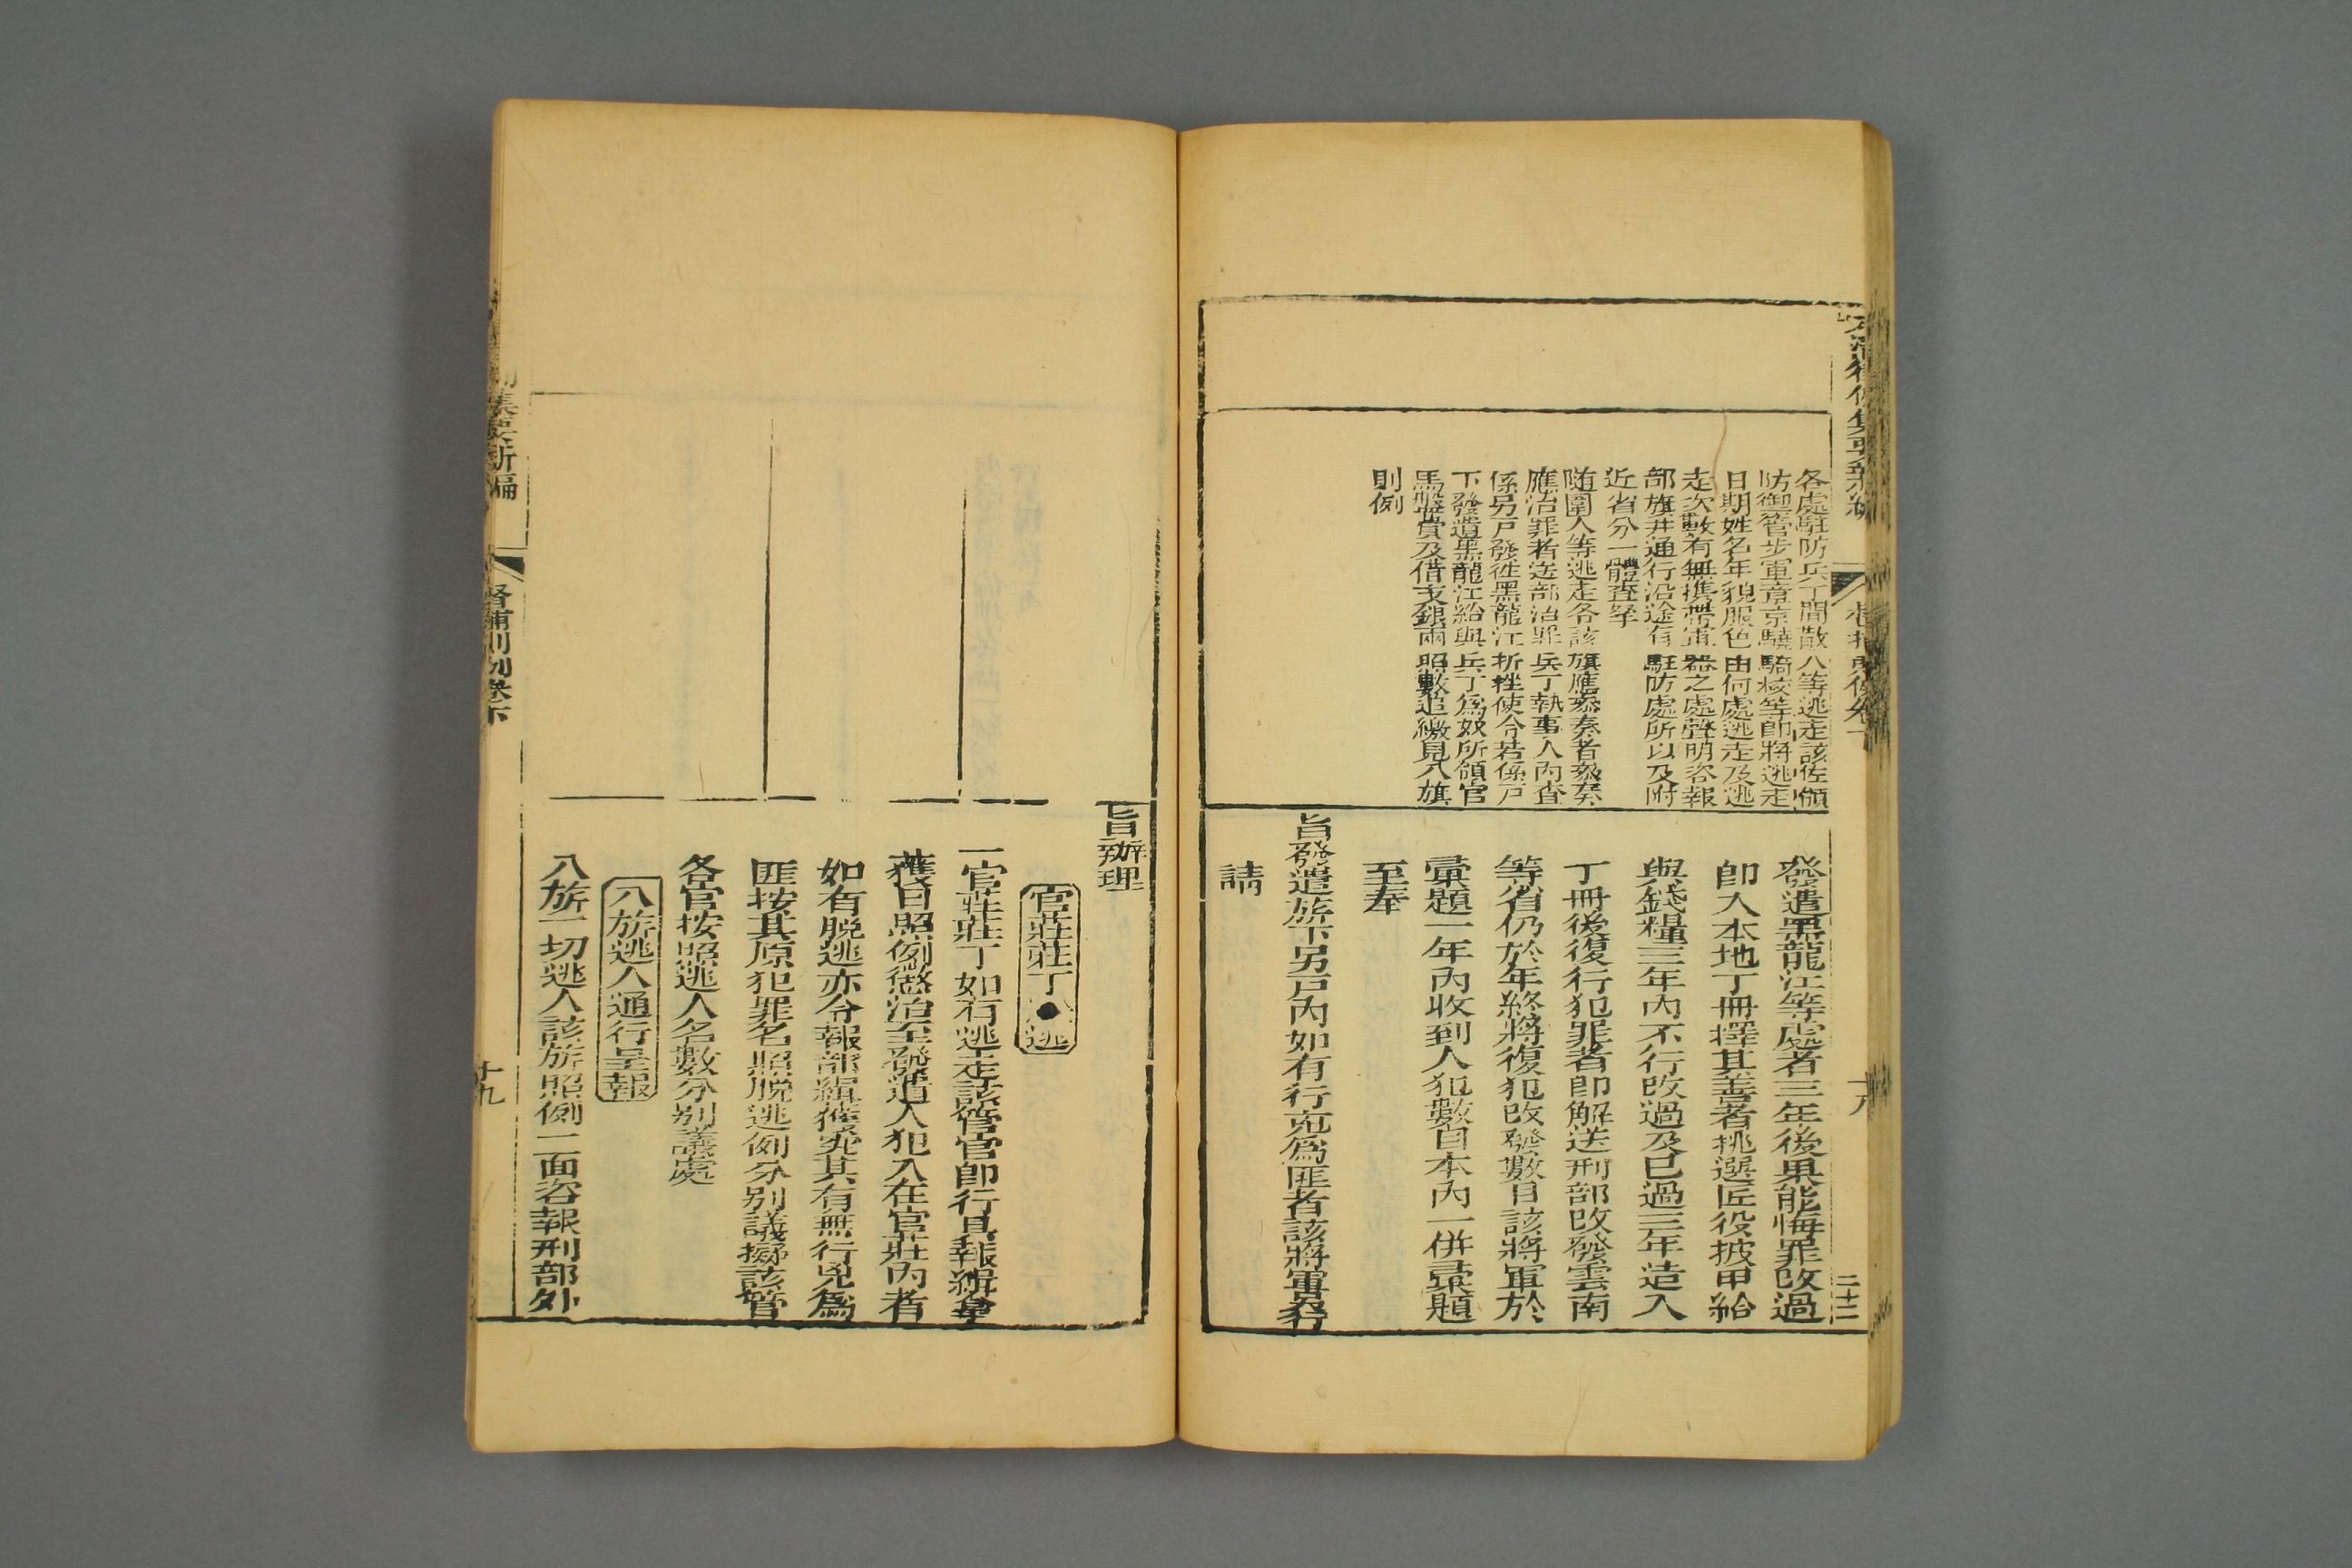 各處駐防兵丁閒散人等逃走該佐領
防禦管步軍章京驍騎校等卽將逃走
日期姓名年貌服色由何處逃走及逃
走次數有無携帶軍器之處聲明咨報
部旗幷通行沿途有駐防處所以及附
近省分一體查拏
随圍人等逃走各該旗應叅奏者叅奏
應治罪者送部治罪兵丁執事人內查
係另戶發往黑龍江折挫使令若係戶
下發遣黑龍江給與兵丁爲奴所領官
馬賞及借支銀兩照數追繳見八旗
則例
發遣黑龍江等處者三年後果能悔罪改過
卽入本地丁冊擇其善者挑選匠役披甲給
與錢糧三年內不行改過及已過三年造入
丁冊後復行犯罪者卽解送刑部改發雲南
等省仍於年終將復犯改發數目該將軍於
彚題一年內收到人犯數目本內一併彚題
至奉
旨發遣旂下另戶內如有行兇爲匪者該將軍另行
請
十八
二十二
旨辦理
官莊莊丁●逃
一官莊莊丁如有逃走該管官卽行具報緝拿
獲日照例懲治至發遣人犯入在官莊內者
如有脫逃亦令報部緝獲究其有無行兇爲
匪按其原犯罪名照脫逃例分别議擬該管
各官按照逃人名數分别議處
八旂逃人通行呈報
八旂一切逃人該旂照例一面咨報刑部外
集要新編
督捕則例卷下
十九